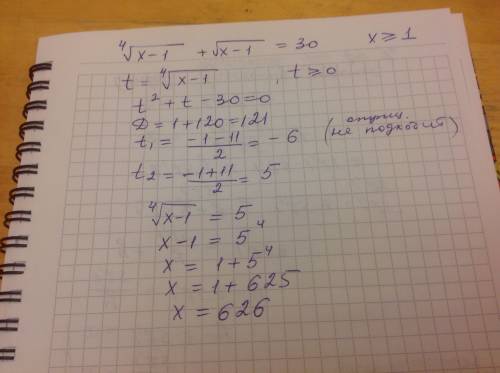 ⁴√x-1 + √x-1 = 30 x ≥ 1
t = ⁴√x-1 , t ≥ 0
t² + t - 30 = 0
D = 1 + 120 = 121
t₁ = (-1-11)/2 = -6 (отриц. не подходит)
t₂ = (-1+11)/2 = 5
⁴√x-1 = 5
x - 1 = 5⁴
x = 1 + 5⁴
x = 1 + 625
x = 626